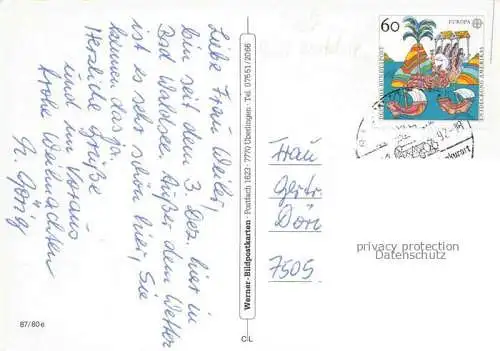 Liebe Frau Weiler,
bin seit dem 3. Dez. hier in
Bad Waldsee. Außer dem Wetter
ist es sehr schön hier, Sie
kennen das ja.
Herzliche Grüße
und im Voraus
frohe Weihnachten
Werner-Bildpostkarten · Postfach 1623 · 7770 Überlingen · Tel. 07551/2066
87/80e
CL
60
EUROPA
DEUTSCHE BUNDESPOST
ENTDECKUNG AMERIKAS
Frau
Gertr
Dör
7505
privacy protection
Datenschutz